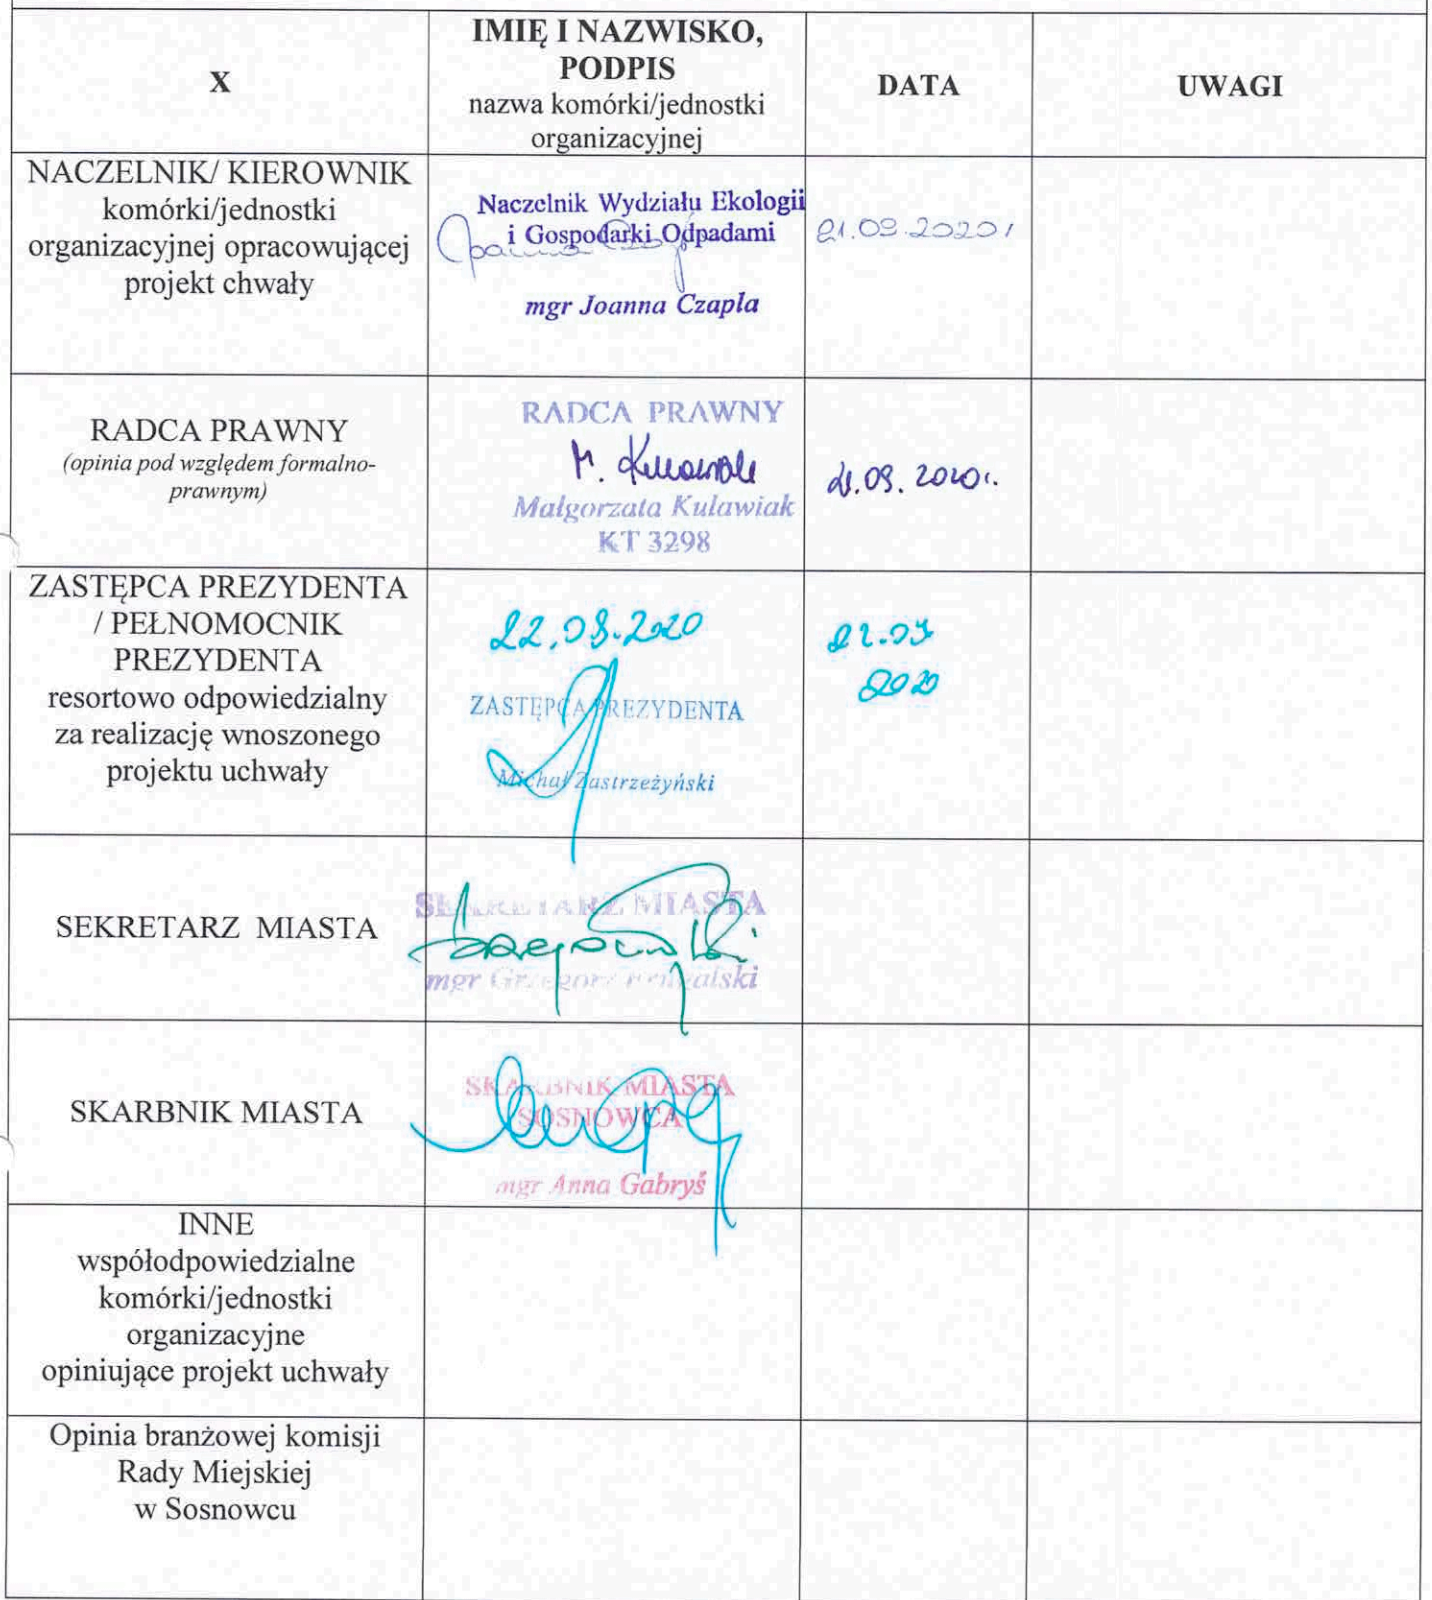 X
IMIĘ I NAZWISKO,
PODPIS
nazwa komórki/jednostki
organizacyjnej
DATA
UWAGI
NACZELNIK/ KIEROWNIK
komórki/jednostki
organizacyjnej opracowującej
projekt chwały
Naczelnik Wydziału Ekologii
i Gospodarki Odpadami
mgr Joanna Czapla
21.09.2020r
RADCA PRAWNY
(opinia pod względem formalno-
prawnym)
RADCA PRAWNY
M. Kulawiak
Małgorzata Kulawiak
KT 3298
21.09.2020r.
ZASTĘPCA PREZYDENTA
/ PEŁNOMOCNIK
PREZYDENTA
resortowo odpowiedzialny
za realizację wnoszonego
projektu uchwały
22.09.2020
ZASTĘPCA PREZYDENTA
Michał Zastrzeżyński
22.09
2020
SEKRETARZ MIASTA
SEKRETARZ MIASTA
mgr Grzegorz
SKARBNIK MIASTA
SKARBNIK MIASTA
SOSNOWCA
mgr Anna Gabryś
INNE
współodpowiedzialne
komórki/jednostki
organizacyjne
opiniujące projekt uchwały
Opinia branżowej komisji
Rady Miejskiej
w Sosnowcu